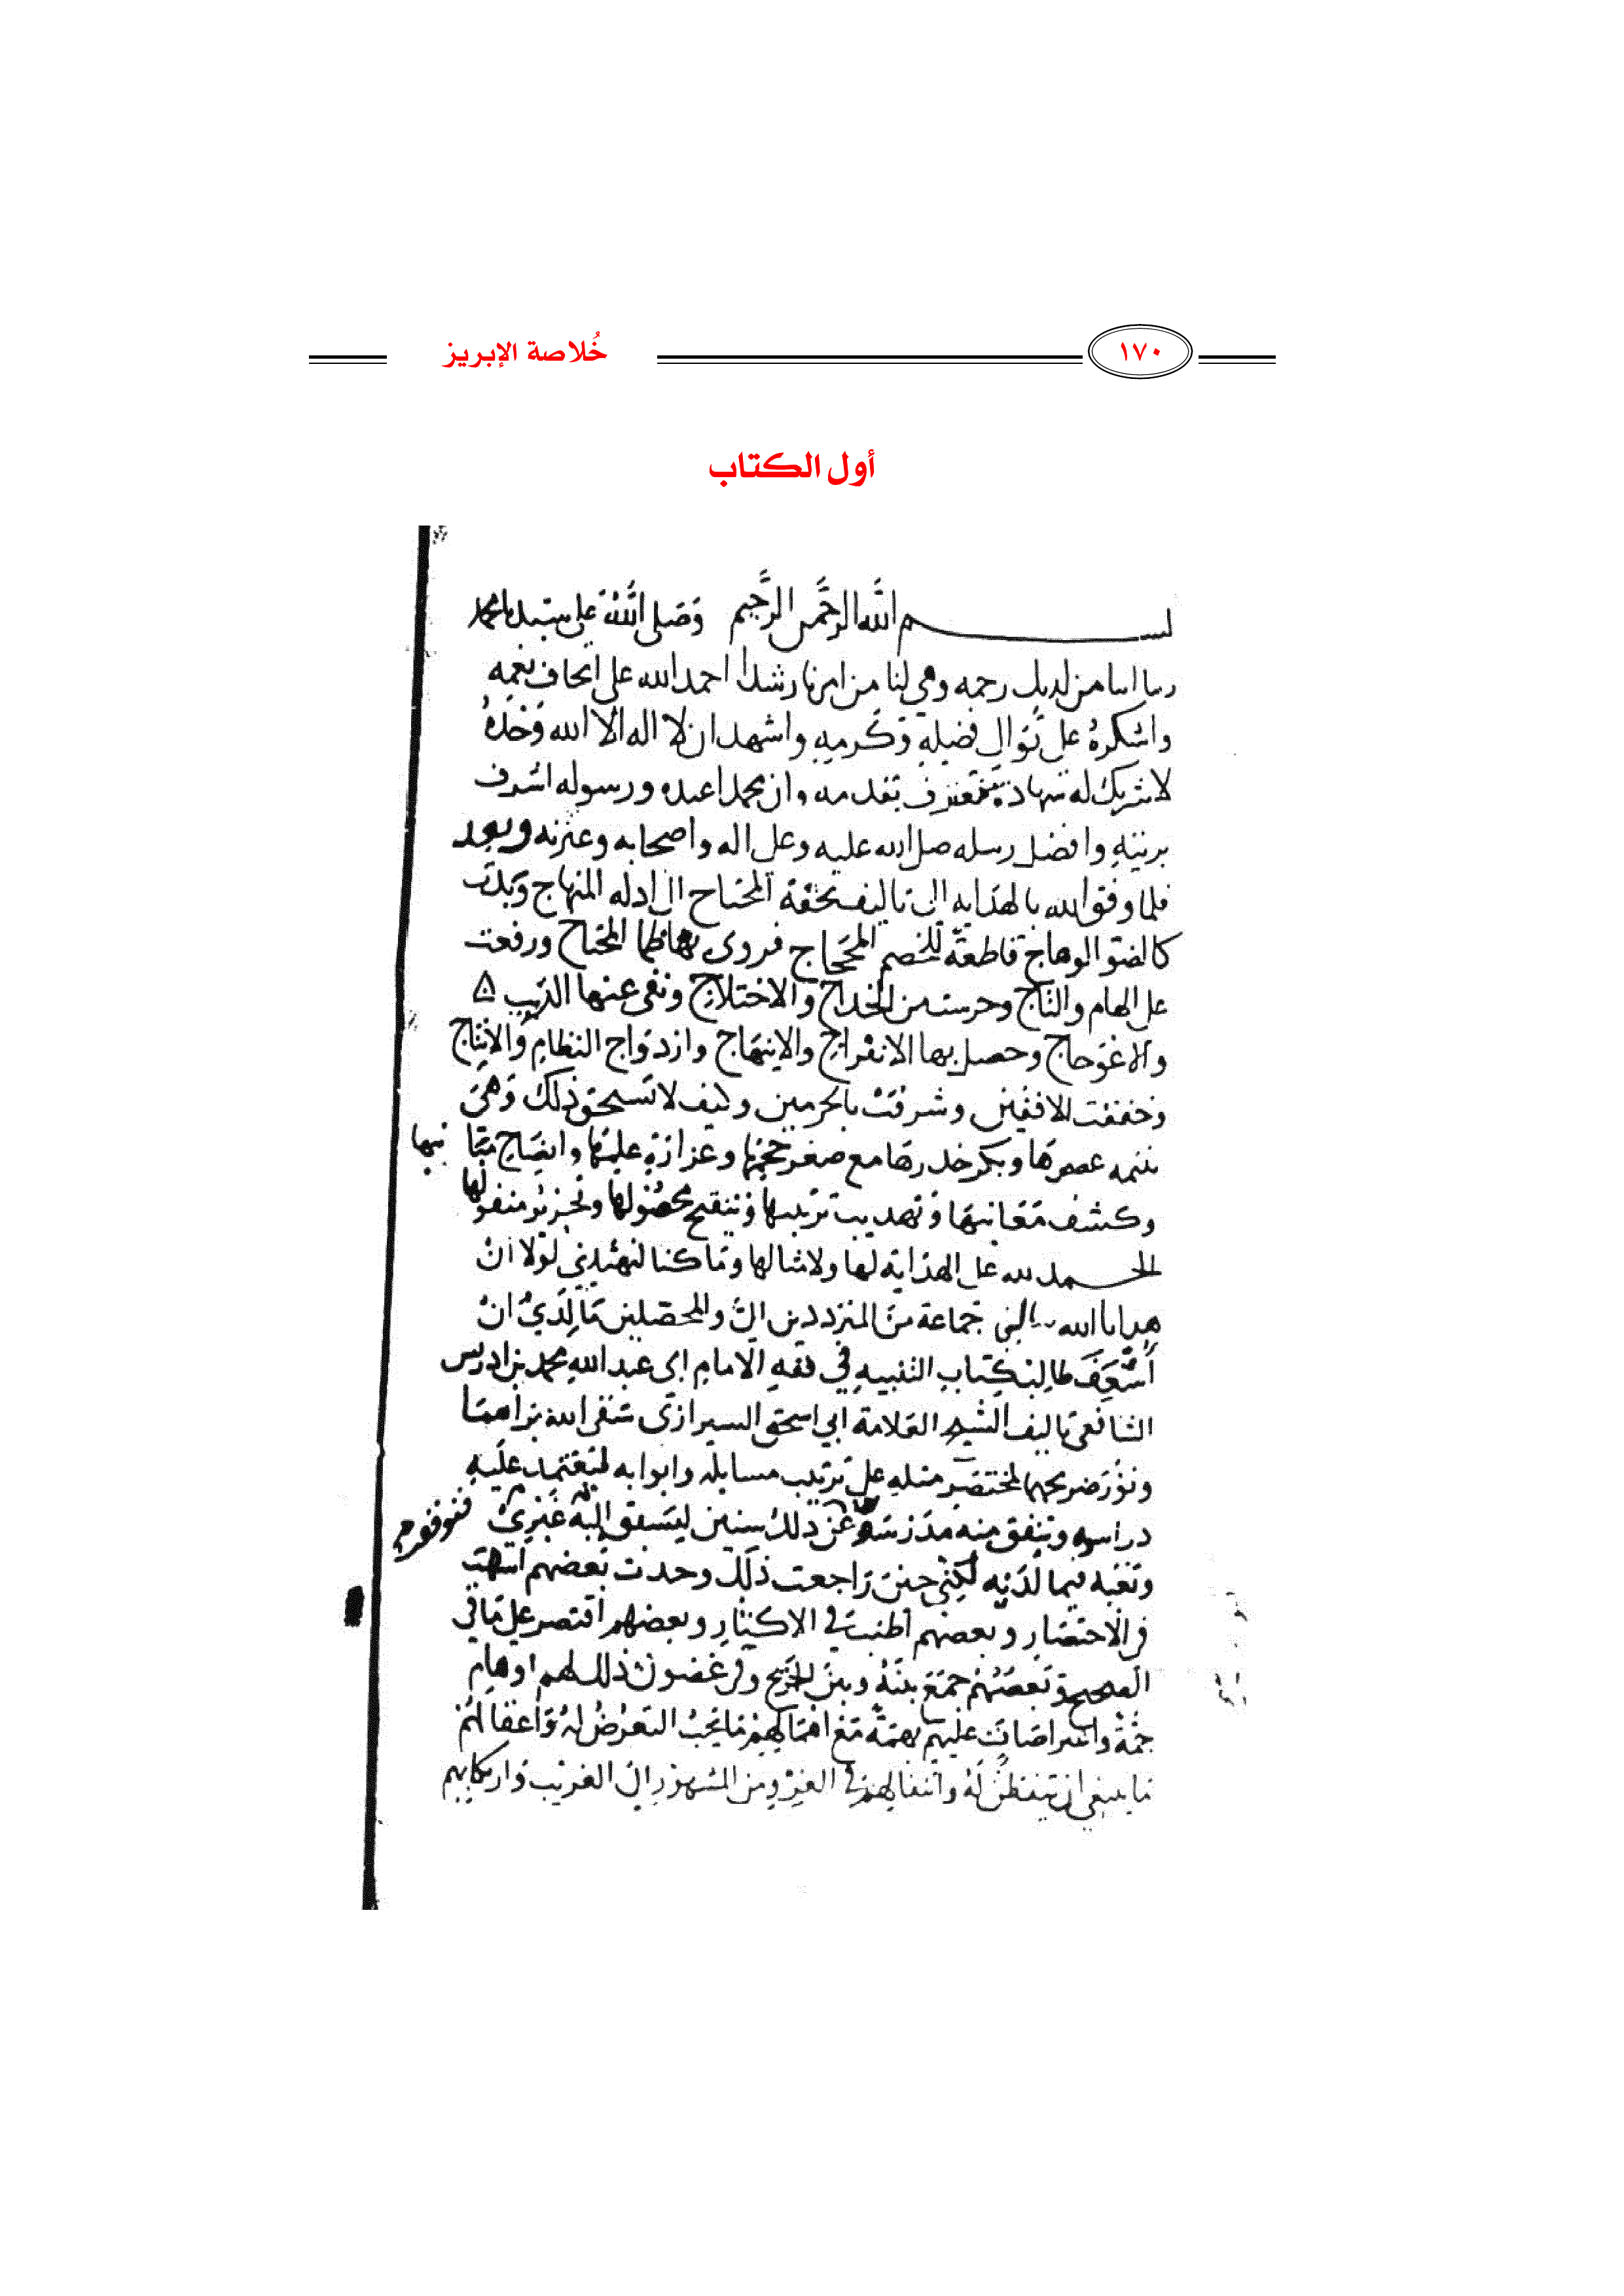 خُلاصة الإبريز
١٧٠
أول الكتاب
بسم الله الرحمن الرحيم وصلى الله على سيدنا محمد
ربنا اتنا من لدنك رحمه وهي لنا من امرنا رشدا احمد الله على اتحاف نعمه
واشكره على توالي فضله وكرمه واشهد ان لا اله الا الله وحده
لا شريك له شهادة معترف بتقدمه وان محمدا عبده ورسوله اشرف
بريته وافضل رسله صلى الله عليه وعلى اله واصحابه وعترته وبعد
فلما وفق الله بالهداية الى تاليف تحفة المحتاج الى ادلة المنهاج وبدت
كالضو الوهاج قاطعة للخصم المحجاج فروي بها ظما المحتاج ورفعت
على الهام والتاج وحرست من الخداج والاختلاج ونفي عنها الريب
والاعوجاج وحصل بها الانفراج والابتهاج وازدواج النظام والانتاج
وخفقت الافقين وشرفت بالحرمين وكيف لا تستحق ذلك وهي
يتيمه عصرها وبكر خدرها مع صغر حجمها وغزارة علمها وايضاح مبانيها
وكشف معانيها وتهذيب ترتيبها وتنقيح محصولها وتحرير منقولها
الحمد لله على الهداية لها ولامثالها وما كنا لنهتدي لولا ان
هدانا الله جماعة من المترددين الي والمحصلين ما لدي ان
اسعف طالب كتاب التنبيه في فقه الامام ابي عبد الله محمد بن ادريس
الشافعي تاليف الشيخ العلامة ابي اسحق الشيرازي سقى الله ثراهما
ونور ضريحهما بمختصر مثله على ترتيب مسايله وابوابه ليعتمد عليه
دراسه وينفق منه مدارسه عن ذلك سنين ليسبق اليه غيري
وتغبه فيما لديه لكني حين راجعت ذلك وجدت بعضهم
في الاختصار وبعضهم اطنب في الاكثار وبعضهم اقتصر على ما في
الصحيح وبعضهم جمع بينه وبين وفي غضون ذلك لهم اوهام
جمة واعتراضات عليهم مع اهمالهم ما يجب التعرض له واغفالهم
ما ينبغي ان يتفطن له وانتقالهم في العزو من المشهور الى الغريب وارتكابهم